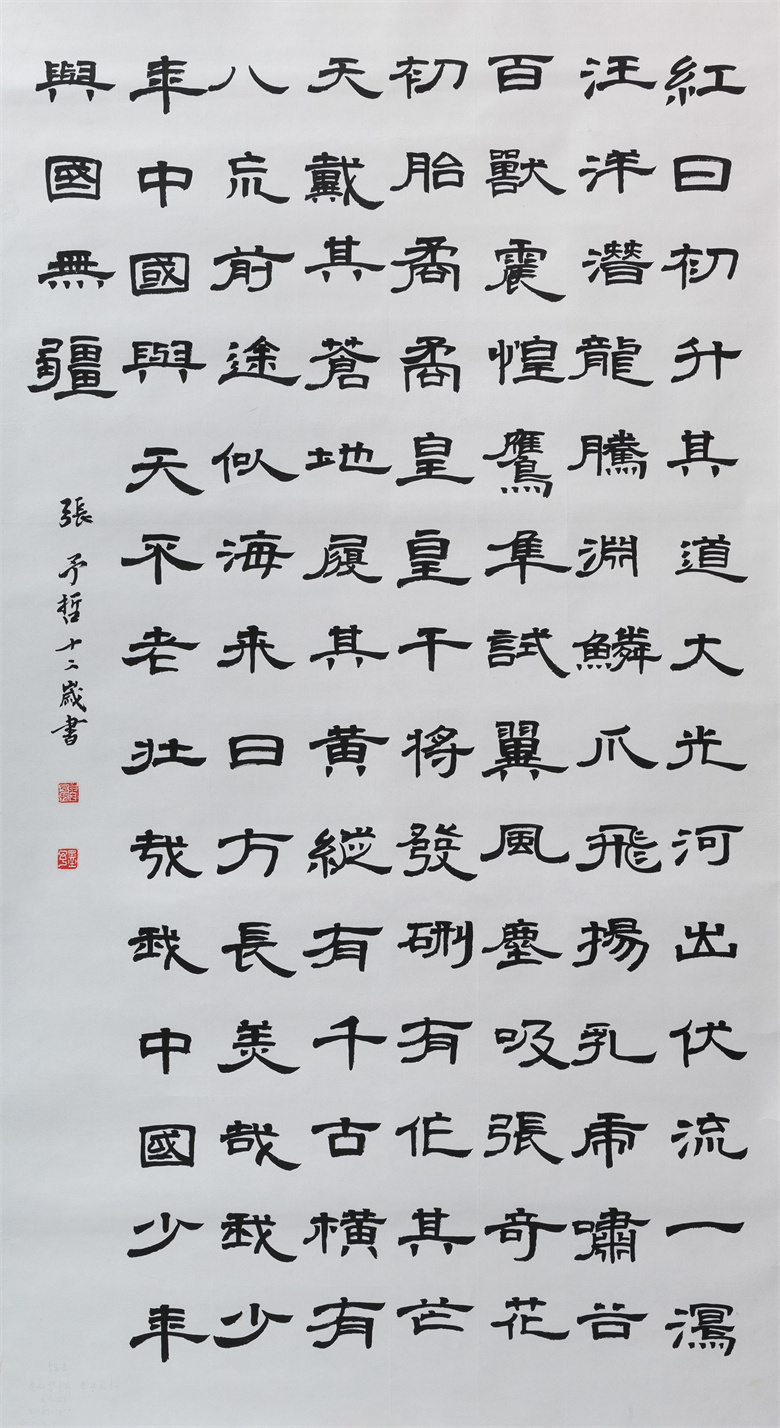 紅日初升其道大光河出伏流一瀉
汪洋潛龍騰淵鱗爪飛揚乳虎嘯谷
百獸震惶鷹隼試翼風塵吸張奇花
初胎矞矞皇皇干將發硎有作其芒
天戴其蒼地履其黃縱有千古橫有
八巟前途似海来日方長美哉我少
年中國與天不老壯哉我中國少年
與國無疆
張予哲十二歲書